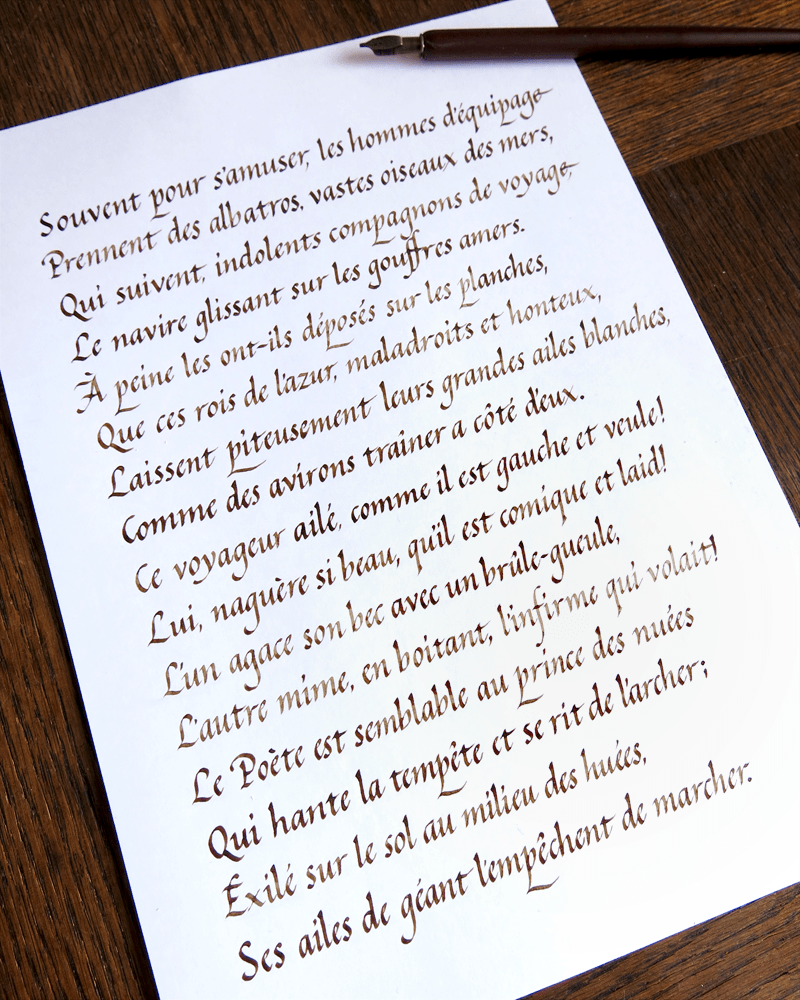 Souvent pour s'amuser, les hommes d'équipage
Prennent des albatros, vastes oiseaux des mers,
Qui suivent, indolents compagnons de voyage,
Le navire glissant sur les gouffres amers.
À peine les ont-ils déposés sur les planches,
Que ces rois de l'azur, maladroits et honteux,
Laissent piteusement leurs grandes ailes blanches,
Comme des avirons traîner a côté d'eux.
Ce voyageur ailé, comme il est gauche et veule!
Lui, naguère si beau, qu'il est comique et laid!
L'un agace son bec avec un brûle-gueule,
L'autre mime, en boitant, l'infirme qui volait!
Le Poète est semblable au prince des nuées
Qui hante la tempête et se rit de l'archer;
Exilé sur le sol au milieu des huées,
Ses ailes de géant l'empêchent de marcher.